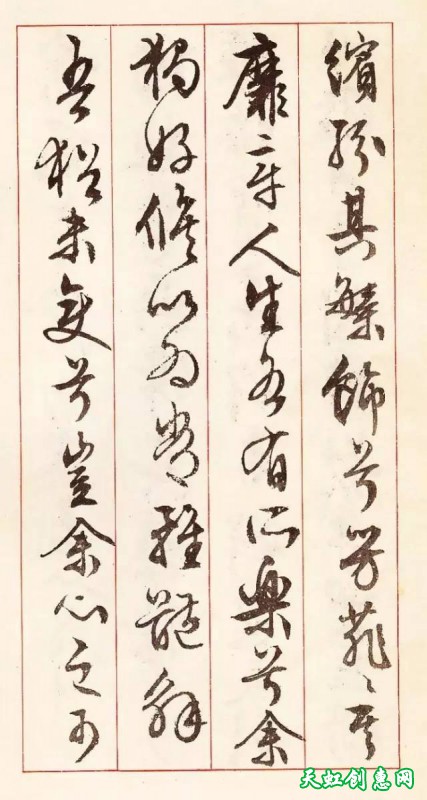 繽紛其繁飾兮芳菲〻其
靡章人生各有所樂兮余
獨好脩以為常雖體解
吾猶未變兮豈余心之可
天虹创惠网